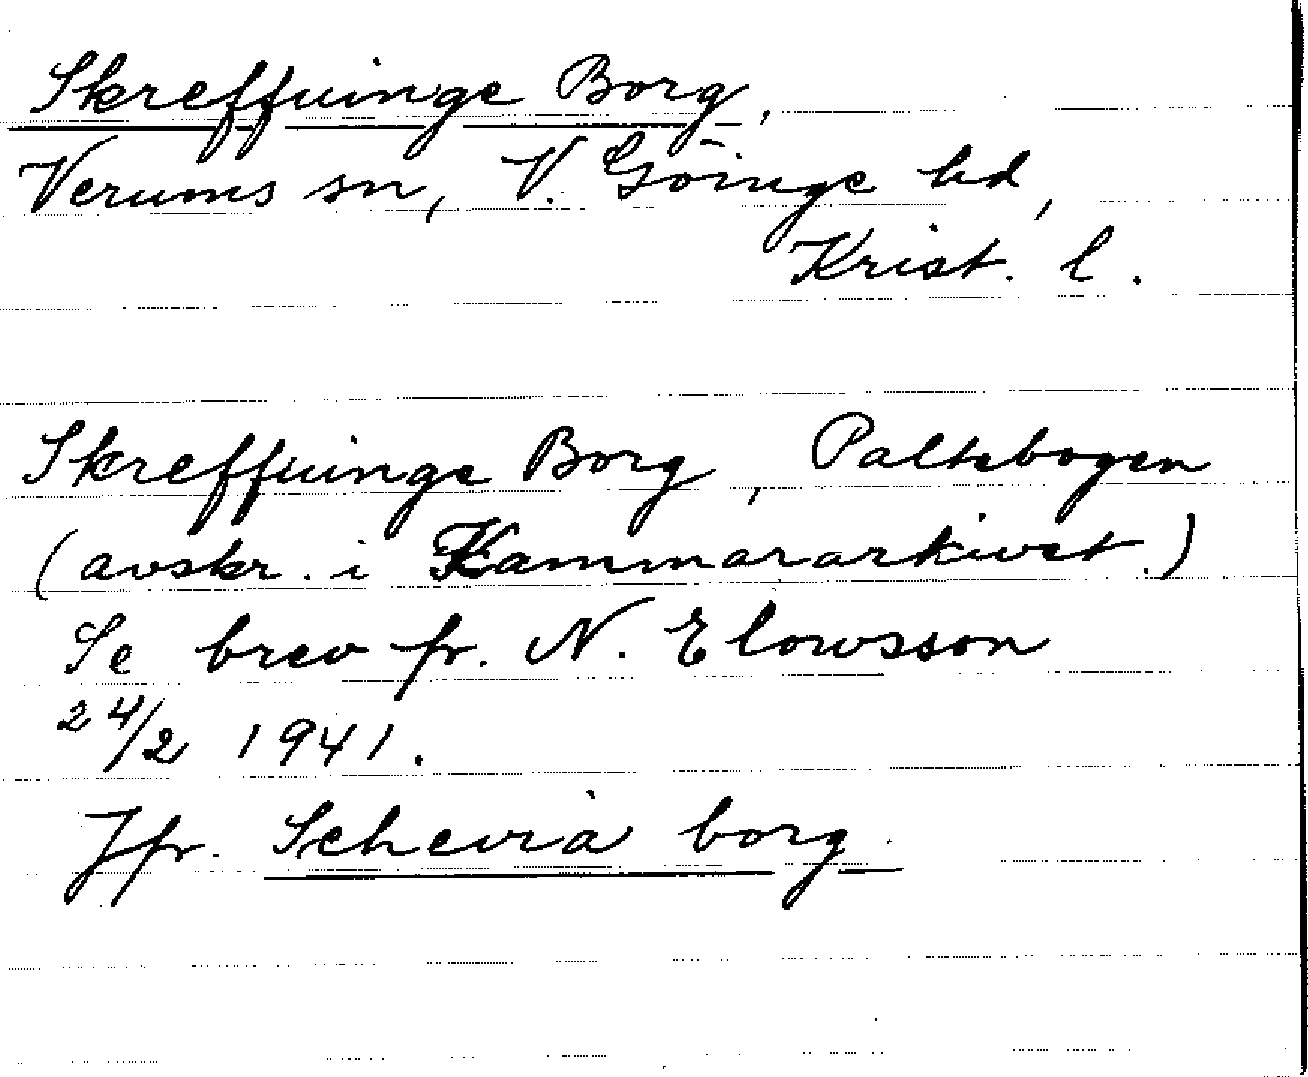 Skreffuinge Borg,
Verums sn, V. Göinge hd,
Krist. l.
Skreffuinge Borg, Paltebogen
(avskr. i Kammararkivet.)
Se brev fr. N. Elowsson
24/2 1941.
Jfr. Scheviä borg.